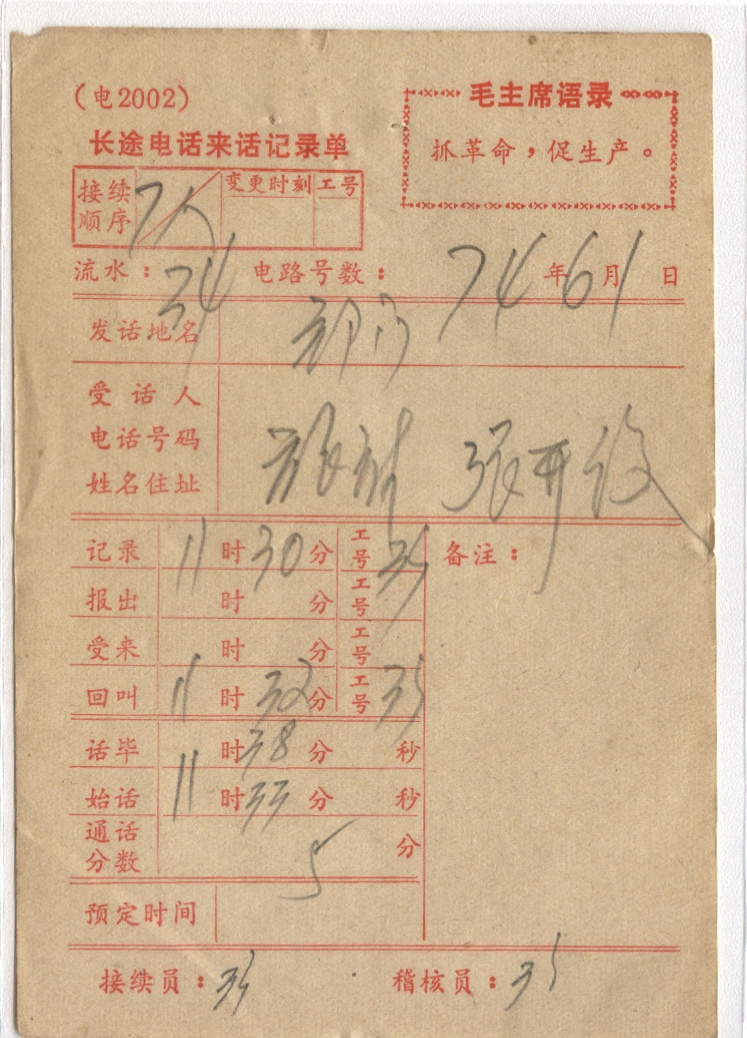 (电2002)
长途电话来话记录单
毛主席语录
抓革命，促生产。
接续顺序 变更时刻 工号
流水：34 电路号数： 74年6月1日
发话地名
受话人
电话号码
姓名住址
记录 11时30分 工号35 备注：
报出 时 分 工号
受来 时 分 工号
回叫 11时32分 工号35
话毕 11时38分 秒
始话 11时33分 秒
通话分数 5分
预定时间
接续员：35 稽核员：35